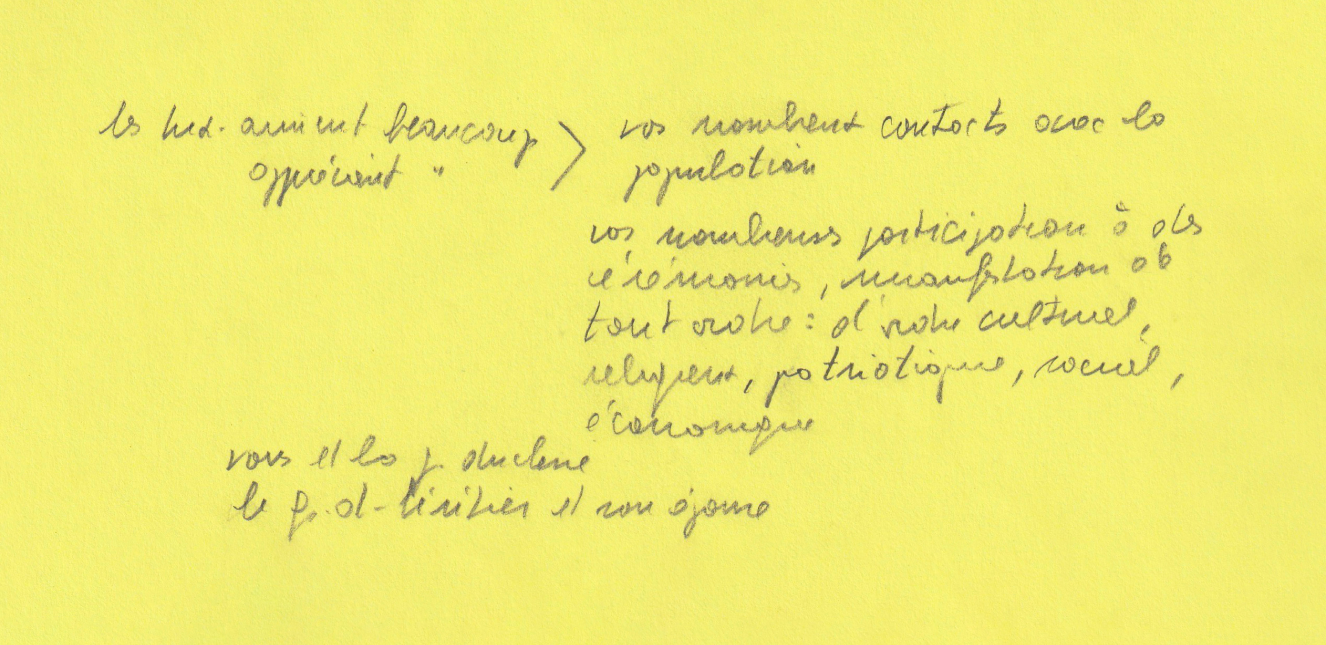 les lux. aiment beaucoup > vos nombreux contacts avec la
apprécient " population
vos nombreuses participation à des
cérémonies, manifestation de
tout ordre : d'ordre culturel,
religieux, patriotique, social,
économique
vous et la g. duchesse
le g. d-héritier et son épouse